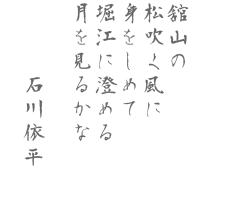 舘山の
松吹く風に
身をしめて
堀江に澄める
月を見るかな
石川依平